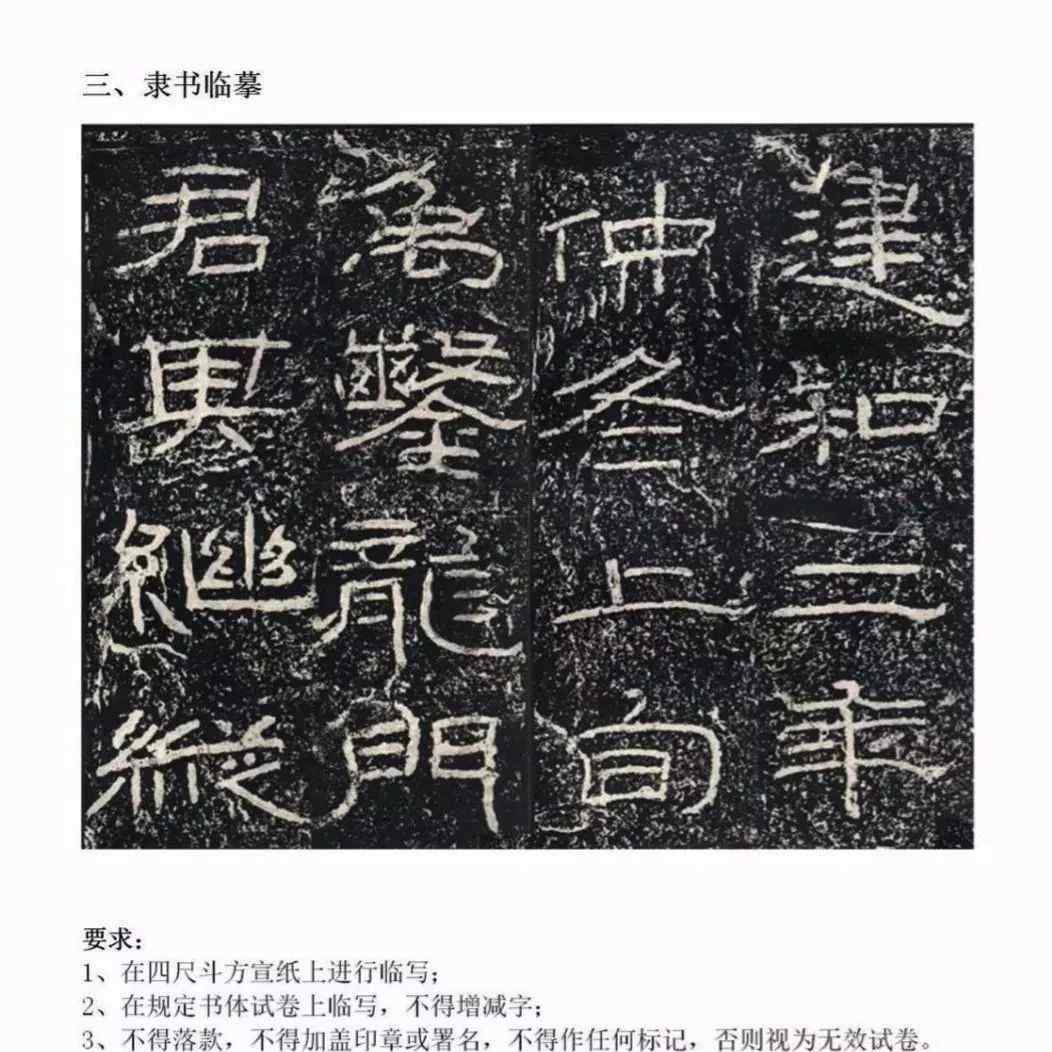 三、隶书临摹
建和二年
仲冬上旬
禹鑿龍門
君其繼縱
要求：
1、在四尺斗方宣纸上进行临写；
2、在规定书体试卷上临写，不得增减字；
3、不得落款，不得加盖印章或署名，不得作任何标记，否则视为无效试卷。